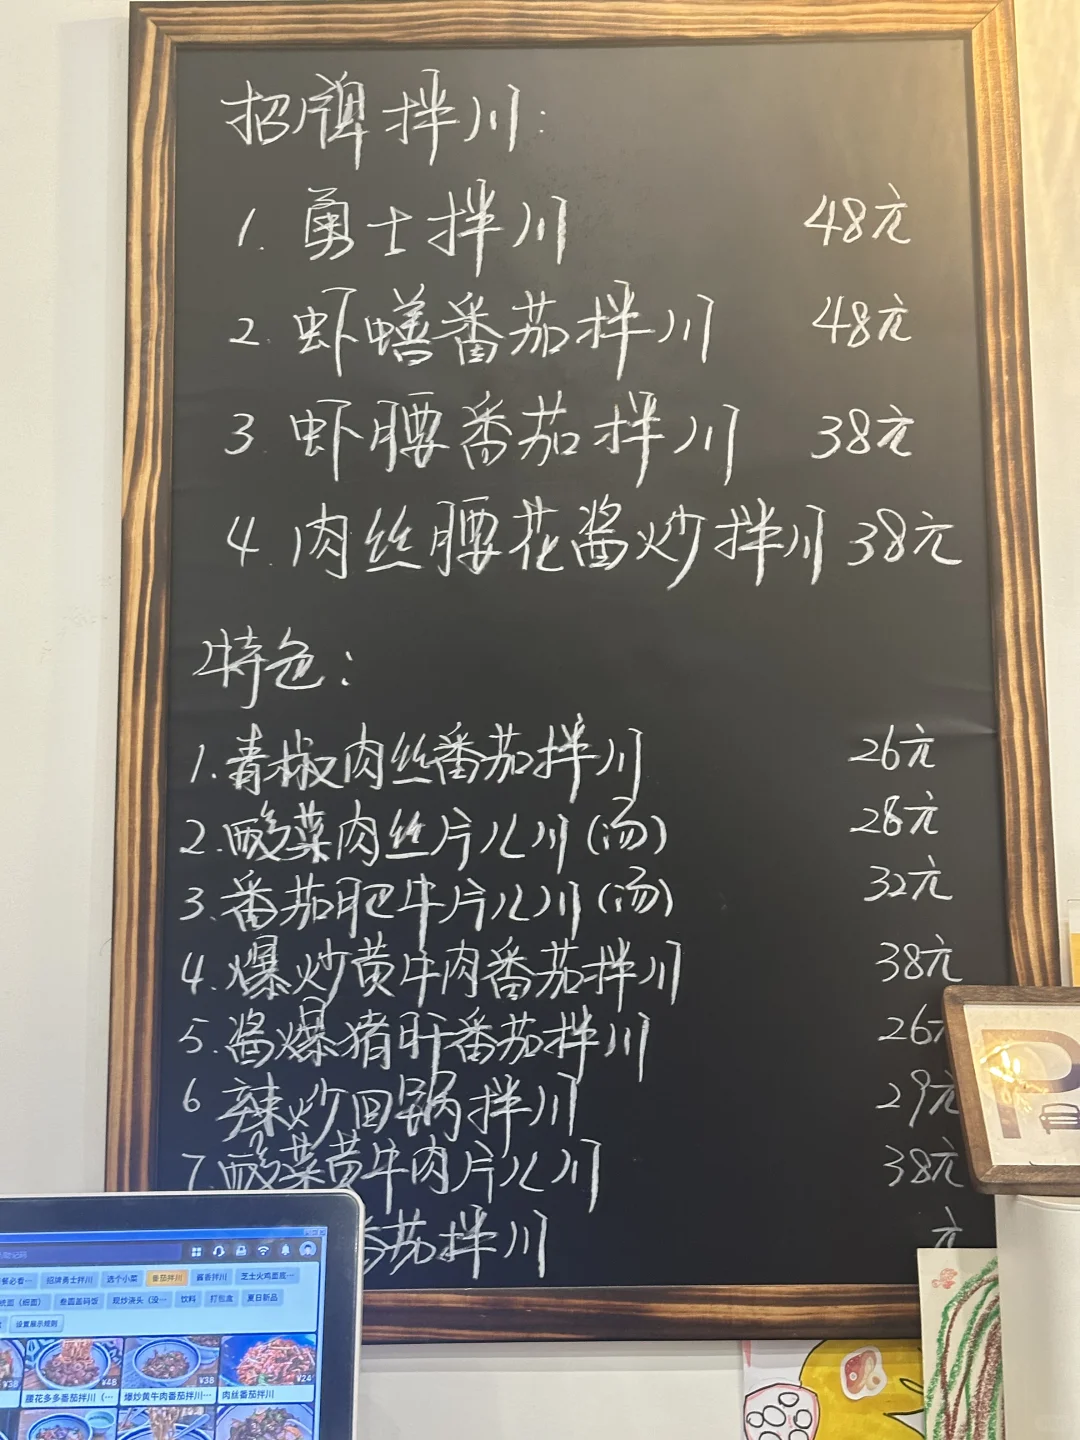 招牌拌川:
1. 勇士拌川 48元
2. 虾蟮番茄拌川 48元
3. 虾腰番茄拌川 38元
4. 肉丝腰花酱炒拌川 38元
特色:
1.青椒肉丝番茄拌川 26元
2.酸菜肉丝片儿川(汤) 28元
3.番茄肥牛片儿川(汤) 32元
4.爆炒黄牛肉番茄拌川 38元
5.酱爆猪肝番茄拌川 26元
6 辣炒回锅拌川 29元
7.酸菜黄牛肉片儿川 38元
番茄拌川 元
P
招牌勇士拌川 选个小菜 番茄拌川 酱香拌川
叁圆盖码饭 现炒浇头(没… 饮料 打包盒 夏日新品
设置展示规则
¥38 ¥48 ¥38 ¥24
腰花多多番茄拌川(… 爆炒黄牛肉番茄拌川… 肉丝番茄拌川